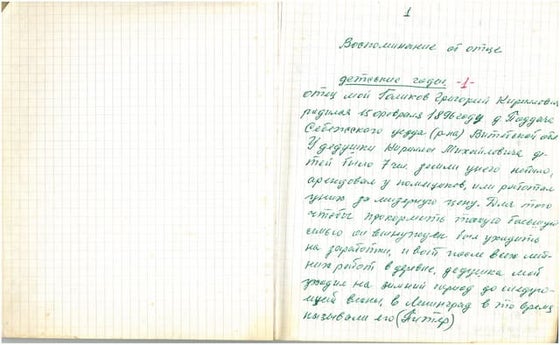 1
Воспоминание от отце
детские годы -1-
отец мой Голиков Григорий Кирилович
родился 15 февраля 1896 году д Поддача
Себежского уезда (р-на) Витебской обл
У дедушки Кирилла Михайловича де-
тей было 7 чел. земли унего небыло,
арендовал у помещиков, или работал
уних за мизерную цену. Для того
чтобы прокормить такую большую
семью он вынужден был уходить
на заработки, и вот после всех лет-
них работ в дервне, дедушка мой
уходил на зимний период до следую-
щей весны, в Ленинград в то время
называли его (Питер)